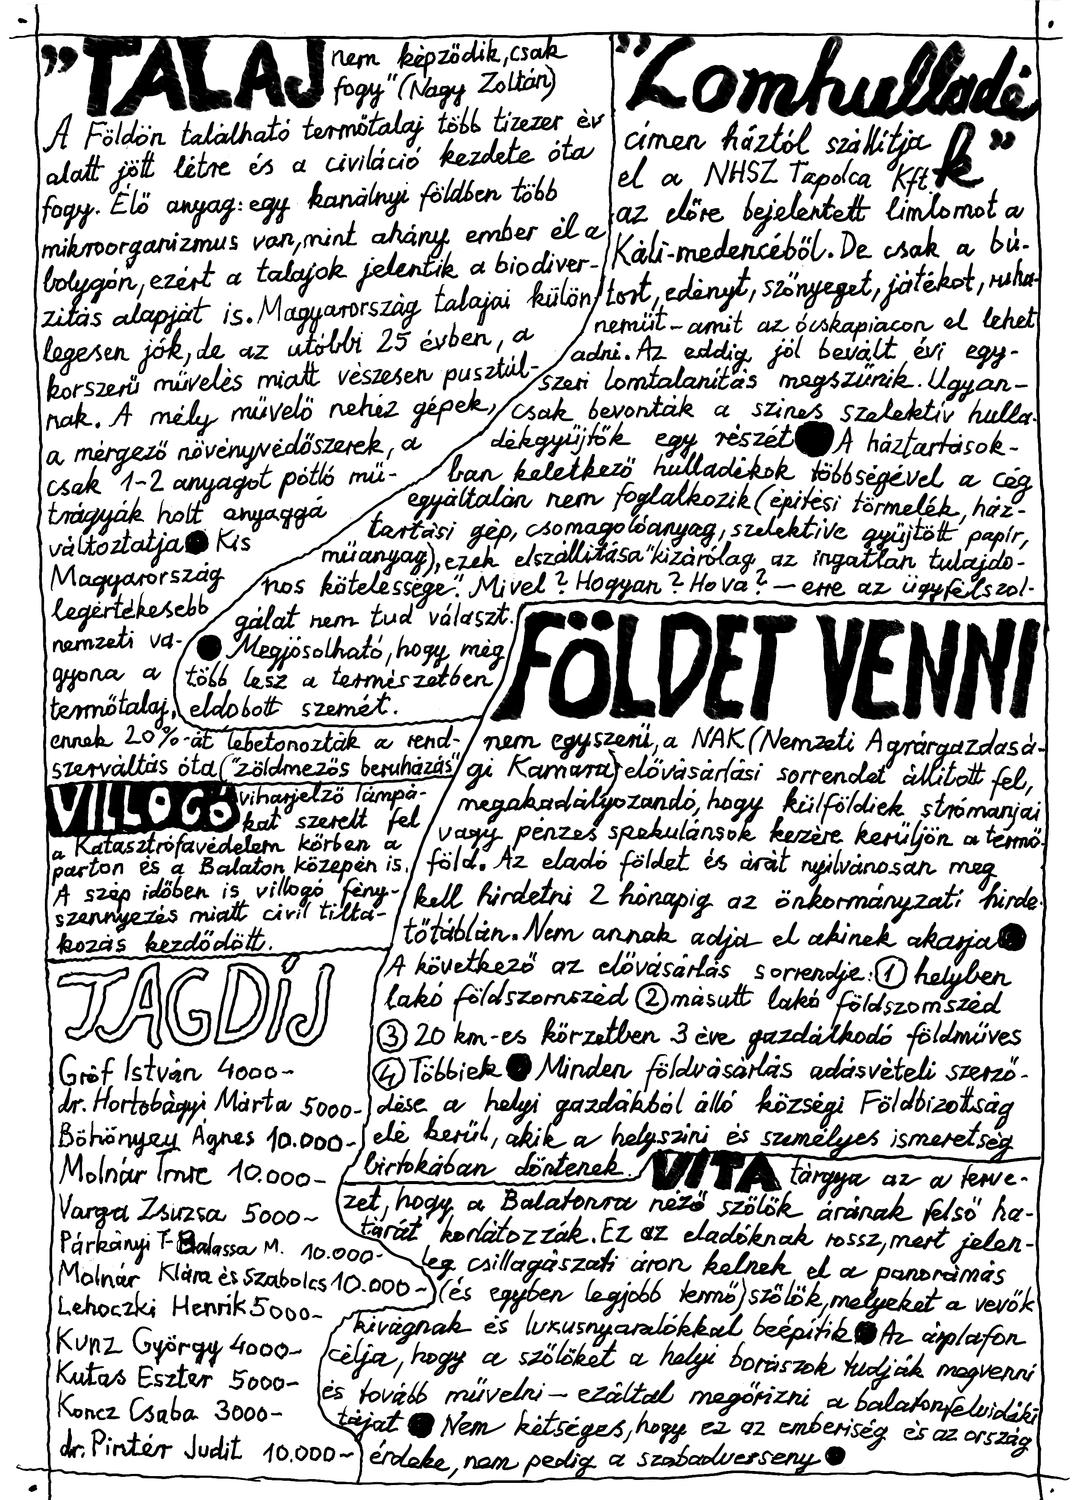 "TALAJ nem képződik, csak
fogy" (Nagy Zoltán)
A Földön található termőtalaj több tízezer év
alatt jött létre és a civiláció kezdete óta
fogy. Élő anyag: egy kanálnyi földben több
mikroorganizmus van, mint ahány ember él a
bolygón, ezért a talajok jelentik a biodiver-
zitás alapját is. Magyarország talajai külön
legesen jók, de az utóbbi 25 évben, a
korszerű művelés miatt vészesen pusztúl-
nak. A mély művelő nehéz gépek,
a mérgező növényvédőszerek, a
csak 1-2 anyagot pótló mű-
trágyák holt anyaggá
változtatja ● Kis
Magyarország
legértékesebb
nemzeti va-
gyona a
termőtalaj,
ennek 20%-át lebetonozták a rend-
szerváltás óta ("zöldmezős beruházás")
"Lomhulladé
k"
címen háztól szállítja
el a NHSZ Tapolca Kft
az előre bejelentett limlomot a
Káli-medencéből. De csak a bú-
tort, edényt, szőnyeget, játékot, ruha-
neműt - amit az ócskapiacon el lehet
adni. Az eddig jól bevált évi egy-
szeri lomtalanítás megszűnik. Ugyan-
csak bevonták a színes szelektív hulla-
dékgyűjtők egy részét ● A háztartások-
ban keletkező hulladékok többségével a cég
egyáltalán nem foglalkozik (építési törmelék, ház-
tartási gép, csomagolóanyag, szelektíve gyűjtött papír,
műanyag), ezek elszállítása "kizárólag az ingatlan tulajdo-
nos kötelessége". Mivel? Hogyan? Hova? - erre az ügyfélszol-
gálat nem tud választ.
● Megjósolható, hogy még
több lesz a természetben
eldobott szemét.
VILLOGÓ viharjelző lámpá-
kat szerelt fel
a Katasztrófavédelem körben a
parton és a Balaton közepén is.
A szép időben is villogó fény-
szennyezés miatt civil tilta-
kozás kezdődött.
FÖLDET VENNI
nem egyszerű, a NAK (Nemzeti Agrárgazdasá-
gi Kamara) elővásárlási sorrendet állított fel,
megakadályozandó, hogy külföldiek strómanjai
vagy pénzes spekulánsok kezére kerüljön a termő-
föld. Az eladó földet és árát nyilvánosan meg
kell hirdetni 2 hónapig az önkormányzati hirde-
tőtáblán. Nem annak adja el akinek akarja ●
A következő az elővásárlás sorrendje: 1 helyben
lakó földszomszéd 2 másutt lakó földszomszéd
3 20 km-es körzetben 3 éve gazdálkodó földműves
4 Többiek ● Minden földvásárlás adásvételi szerző-
dése a helyi gazdákból álló községi Földbizottság
elé kerül, akik a helyszíni és személyes ismeretség
birtokában döntenek.
TAGDÍJ
Gróf István 4000-
dr. Hortobágyi Márta 5000-
Böhönyey Ágnes 10.000-
Molnár Imre 10.000-
Varga Zsuzsa 5000-
Párkányi T-Balassa M. 10.000-
Molnár Klára és Szabolcs 10.000-
Lehoczki Henrik 5000-
Kunz György 4000-
Kutas Eszter 5000-
Koncz Csaba 3000-
dr. Pintér Judit 10.000-
VITA tárgya az a terve-
zet, hogy a Balatonra néző szőlők árának felső ha-
tárát korlátozzák. Ez az eladóknak rossz, mert jelen-
leg csillagászati áron kelnek el a panorámás
(és egyben legjobb termő) szőlők, melyeket a vevők
kivágnak és luxusnyaralókkal beépítik ● Az árplafon
célja, hogy a szőlőket a helyi borászok tudják megvenni
és tovább művelni - ezáltal megőrizni a balatonfelvidéki
tájat ● Nem kétséges, hogy ez az emberiség és az ország
érdeke, nem pedig a szabadverseny ●